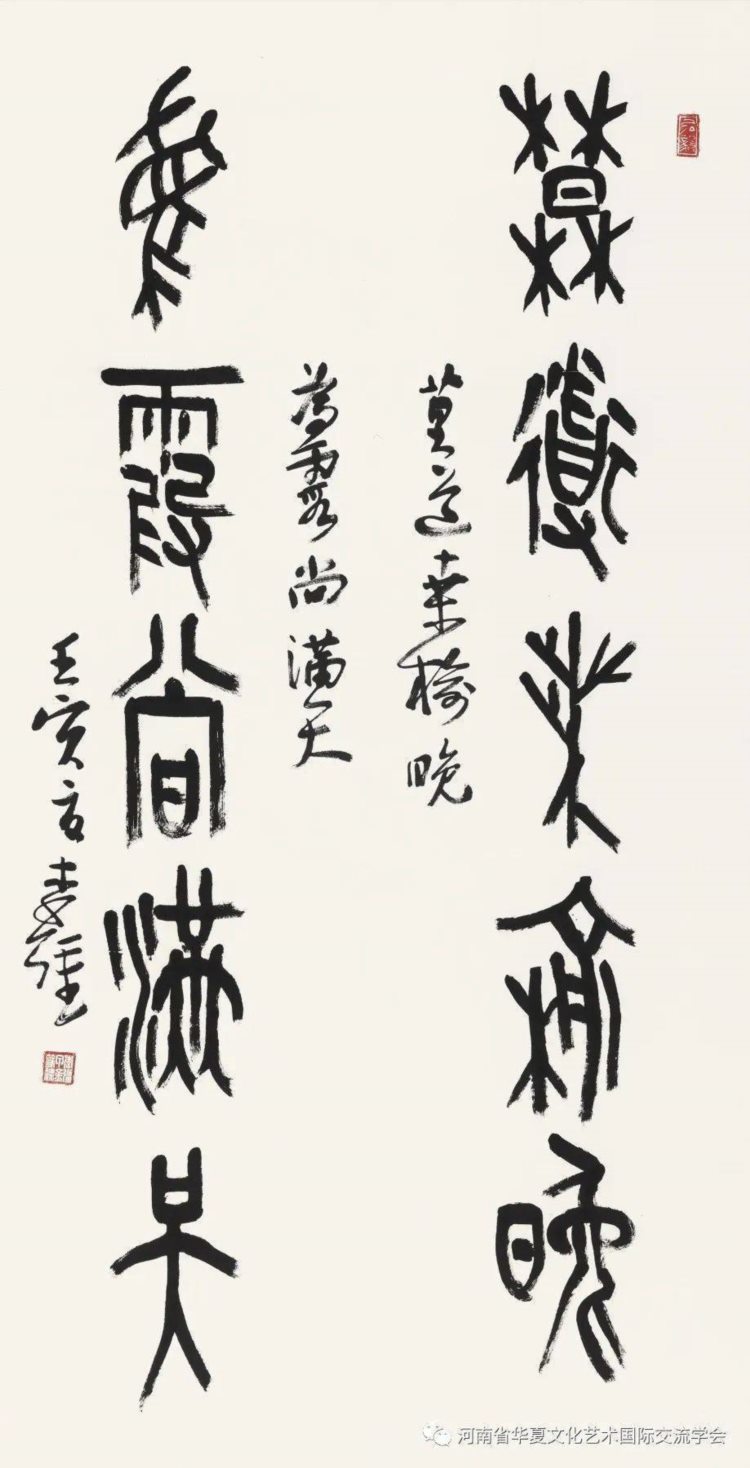 莫道桑榆晚
莫道桑榆晚
為霞尚滿天
為霞尚滿天
壬寅
河南省华夏文化艺术国际交流学会